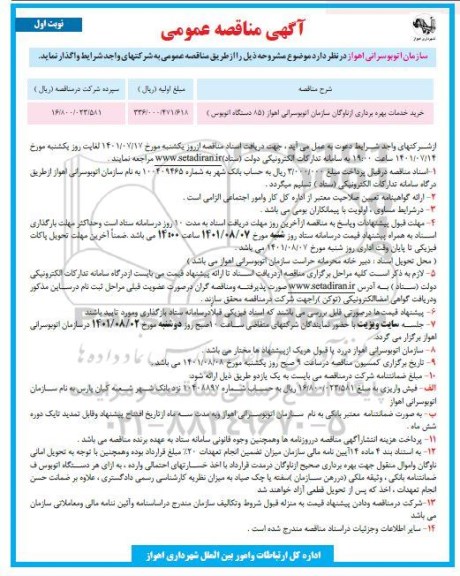 نوبت اول
آگهی مناقصه عمومی
شهرداری اهواز
سازمان اتوبوسرانی اهواز در نظر دارد موضوع مشروحه ذیل را از طریق مناقصه عمومی به شرکتهای واجد شرایط واگذار نماید.
شرح مناقصه
مبلغ اولیه (ریال)
سپرده شرکت درمناقصه (ریال)
خرید خدمات بهره برداری ازناوگان سازمان اتوبوسرانی اهواز (۸۵ دستگاه اتوبوس)
۳۳۶/۰۰۰/۴۷۱/۶۱۸
۱۶/۸۰۰/۰۲۳/۵۸۱
ازشرکتهای واجد شرایط دعوت به عمل می آید ، جهت دریافت اسناد مناقصه ازروز یکشنبه مورخ ۱۴۰۱/۰۷/۱۷ لغایت روز یکشنبه مورخ
۱۴۰۱/۰۷/۱۴ ساعت ۱۹:۰۰ به سامانه تدارکات الکترونیکی دولت (ستاد) www.setadiran.ir مراجعه نمایند .
۱-اسناد مناقصه درقبال پرداخت مبلغ ۳/۰۰۰/۰۰۰ ریال به حساب بانک شهر به شماره ۱۰۰۴۰۹۴۶۵ به نام سازمان اتوبوسرانی اهواز ازطریق
درگاه سامانه تدارکات الکترونیکی (ستاد ) تسلیم میگردد .
۲- ارائه گواهینامه تعیین صلاحیت معتبر از اداره کل کار وامور اجتماعی الزامی است .
۳- درشرایط مساوی ، اولویت با پیمانکاران بومی می باشد .
۴- مهلت قبول پیشنهادات وپاسخ به مناقصه از آخرین روز مهلت دریافت اسناد به مدت ۱۰ روز درسامانه ستاد است وحداکثر مهلت بارگذاری
اسناد به همراه پیشنهاد قیمت درسامانه ستاد روز شنبه مورخ ۱۴۰۱/۰۸/۰۷ ساعت ۱۴:۰۰ می باشد .ضمناً آخرین مهلت تحویل پاکات
فیزیکی تا پایان وقت اداری روز شنبه مورخ ۱۴۰۱/۰۸/۰۷ می باشد .
( محل تحویل اسناد : دبیر خانه محرمانه حراست سازمان اتوبوسرانی اهواز می باشد )
۵- لازم به ذکر است کلیه مراحل برگزاری مناقصه ازدریافت اسناد تا ارائه پیشنهاد قیمت می بایست ازدرگاه سامانه تدارکات الکترونیکی
دولت (ستاد ) به آدرس www.setadiran.ir صورت پذیرفته ومناقصه گران درصورت عضویت قبلی مراحل ثبت نام درسایت مذکور
ودریافت گواهی امضاالکترونیکی (توکن) راجهت شرکت درمناقصه محقق سازند .
۶- پیشنهاد قیمت ها درصورتی قابل بررسی می باشند که اسناد فیزیکی قبلا درسامانه ستاد بارگذاری ومورد تایید باشند .
۷- جلسه سایت ویزیت با حضور نمایندگان شرکتهای متقاضی ساعت ۱۰صبح روز دوشنبه مورخ ۱۴۰۱/۰۸/۰۲ درسازمان اتوبوسرانی
اهواز برگزار می گردد.
۸- سازمان اتوبوسرانی اهواز دررد یا قبول هریک ازپیشنهاد ها مختار می باشد .
۹- تاریخ برگزاری کمسیون مناقصه درساعت ۹ صبح روز یکشنبه مورخ ۱۴۰۱/۰۸/۰۸ می باشد .
۱۰- مبلغ ضمانتنامه شرکت درمناقصه می بایست به یک یازدو طریق ذیل ارائه شود:
الف - فیش واریزی به مبلغ ۱۶/۸۰۰/۰۲۳/۵۸۱ ریال به حساب شماره ۲۱۰۴۰۸۸۹۷ نزد بانک شهر شعبه کیان پارس به نام سازمان
اتوبوسرانی اهواز
ب- به صورت ضمانتنامه معتبر بانکی به نام سازمان اتوبوسرانی اهواز وبه مدت سه ماه ازتاریخ افتتاح پیشنهاد وقابل تمدید تایک دوره
شش ماه .
۱۱- پرداخت هزینه انتشارآگهی مناقصه درروزنامه ها وهمچنین وجوه قانونی سامانه ستاد به عهده برنده مناقصه می باشد .
۱۲- به استناد بند ۴ ماده ۱۴آیین نامه مالی سازمان میزان تضمین انجام تعهدات ۲۰٪ مبلغ قرارداد بوده وهمچنین با توجه به تحویل امانی
ناوگان واموال منقول جهت بهره برداری صحیح ازناوگان درمدت قرارداد با اخذ خسارتهای احتمالی وارده ، به ازای هر دستگاه اتوبوس ف
ضمانتنامه بانکی ، وثیقه ملکی (دررهن سازمان )سفته یا چک صیاد به میزان نظریه کارشناسی رسمی دادگستری ، علاوه بر ضمانت حسن
انجام تعهدات ، اخذ که پس از تحویل قطعی آزاد خواهند شد
۱۳-شرکت درمناقصه ودادن پیشنهاد قیمت به منزله قبول شروط وتکالیف سازمان مندرج دراساسنامه وآئین نامه مالی ومعاملاتی سازمان
می باشد
۱۴- سایر اطلاعات وجزئیات دراسناد مناقصه مندرج شده است .
اداره کل ارتباطات وامور بین الملل شهرداری اهواز
۰۲۱-۸۸۳۴۹۶۷۰-۵